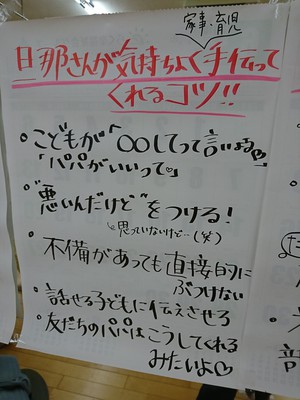 家事・育児
旦那さんが気持ちよく手伝って
くれるコツ!!
・こどもが「〇〇してって言いよる♡」
「パパがいいって♡」
・"悪いんだけど"をつける!
思っていないけど…(笑)
・不備があっても直接的に
ぶつけない
・話せる子どもに伝えさせる
・友だちのパパはこうしてくれる
みたいよ♡